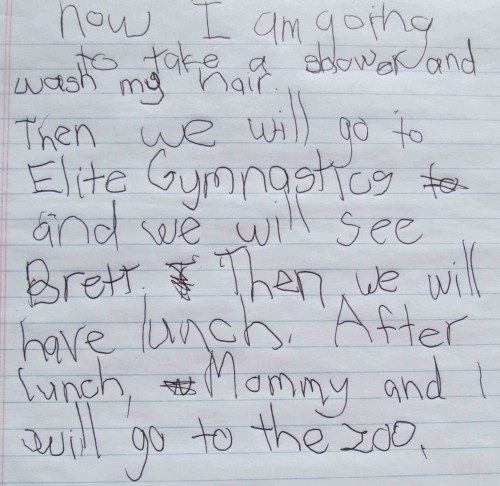 now I am going
to take a shower and
wash my hair.
Then we will go to
Elite Gymnastics to
and we will see
Brett. Then we will
have lunch. After
lunch, Mommy and I
will go to the zoo.